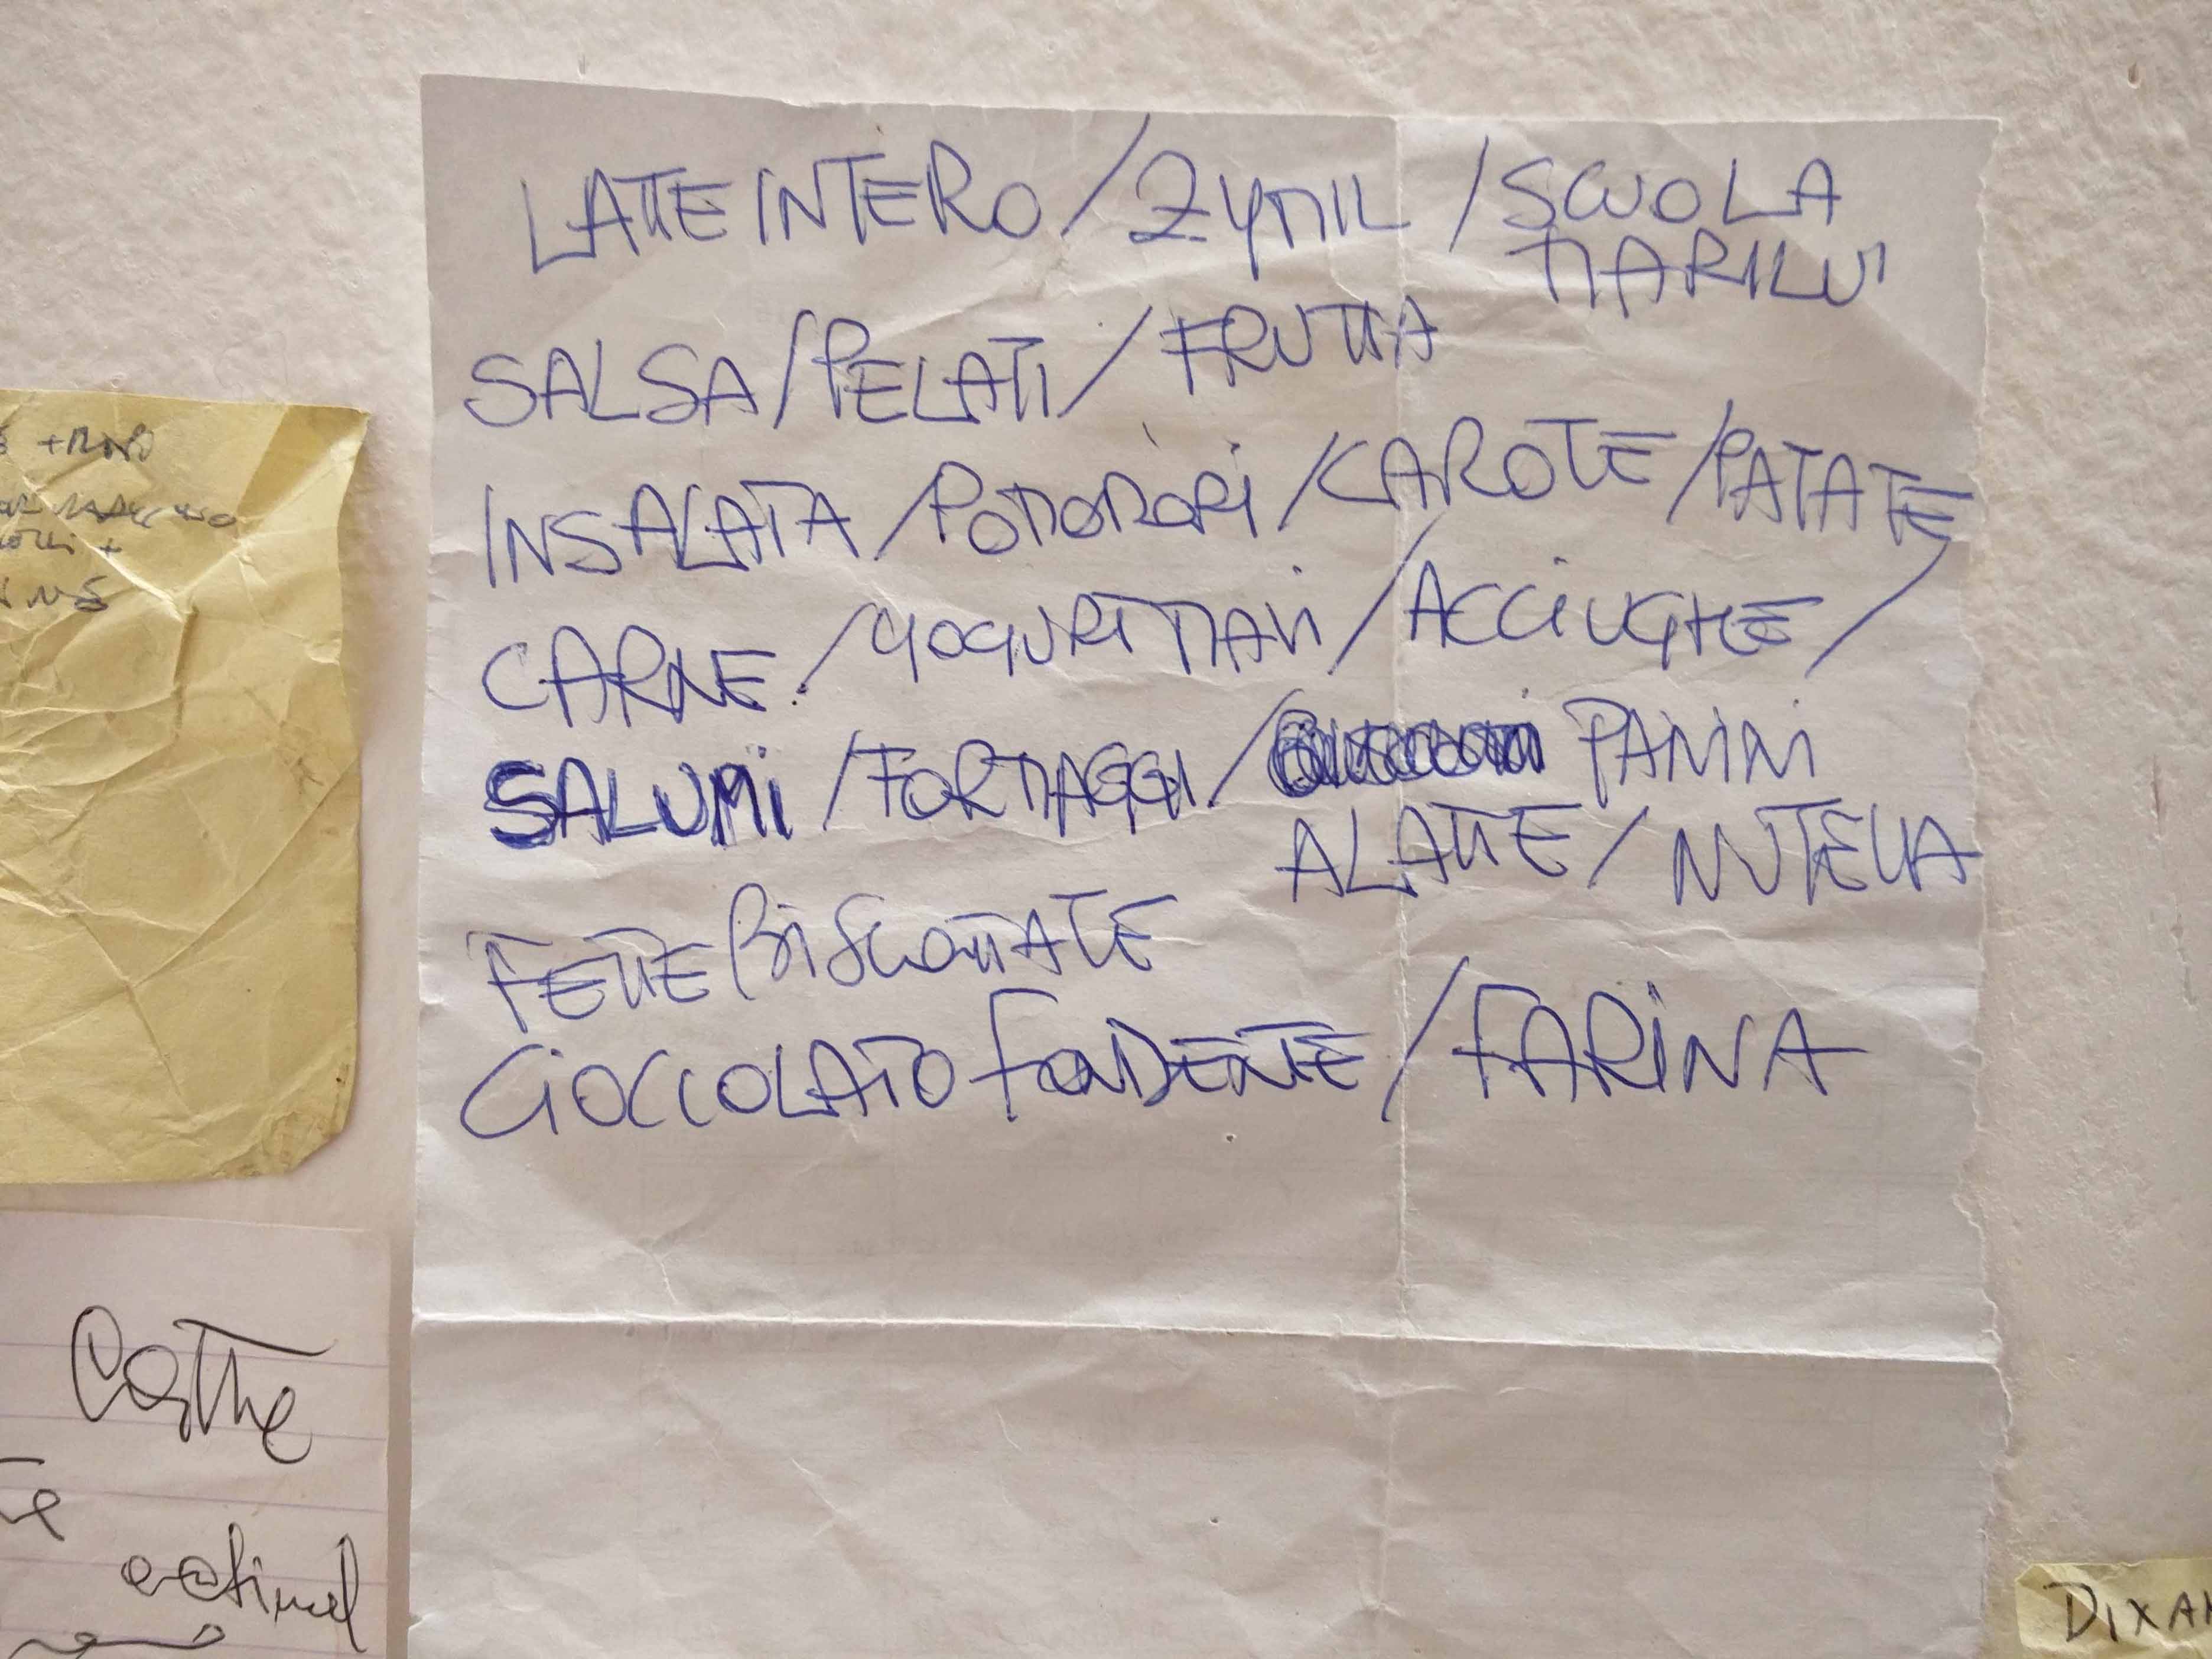 LATTE INTERO / ZYMIL / SCUOLA
MARILU'
SALSA / PELATI / FRUTTA
INSALATA / POMODORI / CAROTE / PATATE
CARNE / YOGURT MAXI / ACCIUGHE /
SALUMI / FORMAGGI / PANINI
AL LATTE / NUTELLA
FETTE BISCOTTATE
CIOCCOLATO FONDENTE / FARINA
actimel
DIXAN